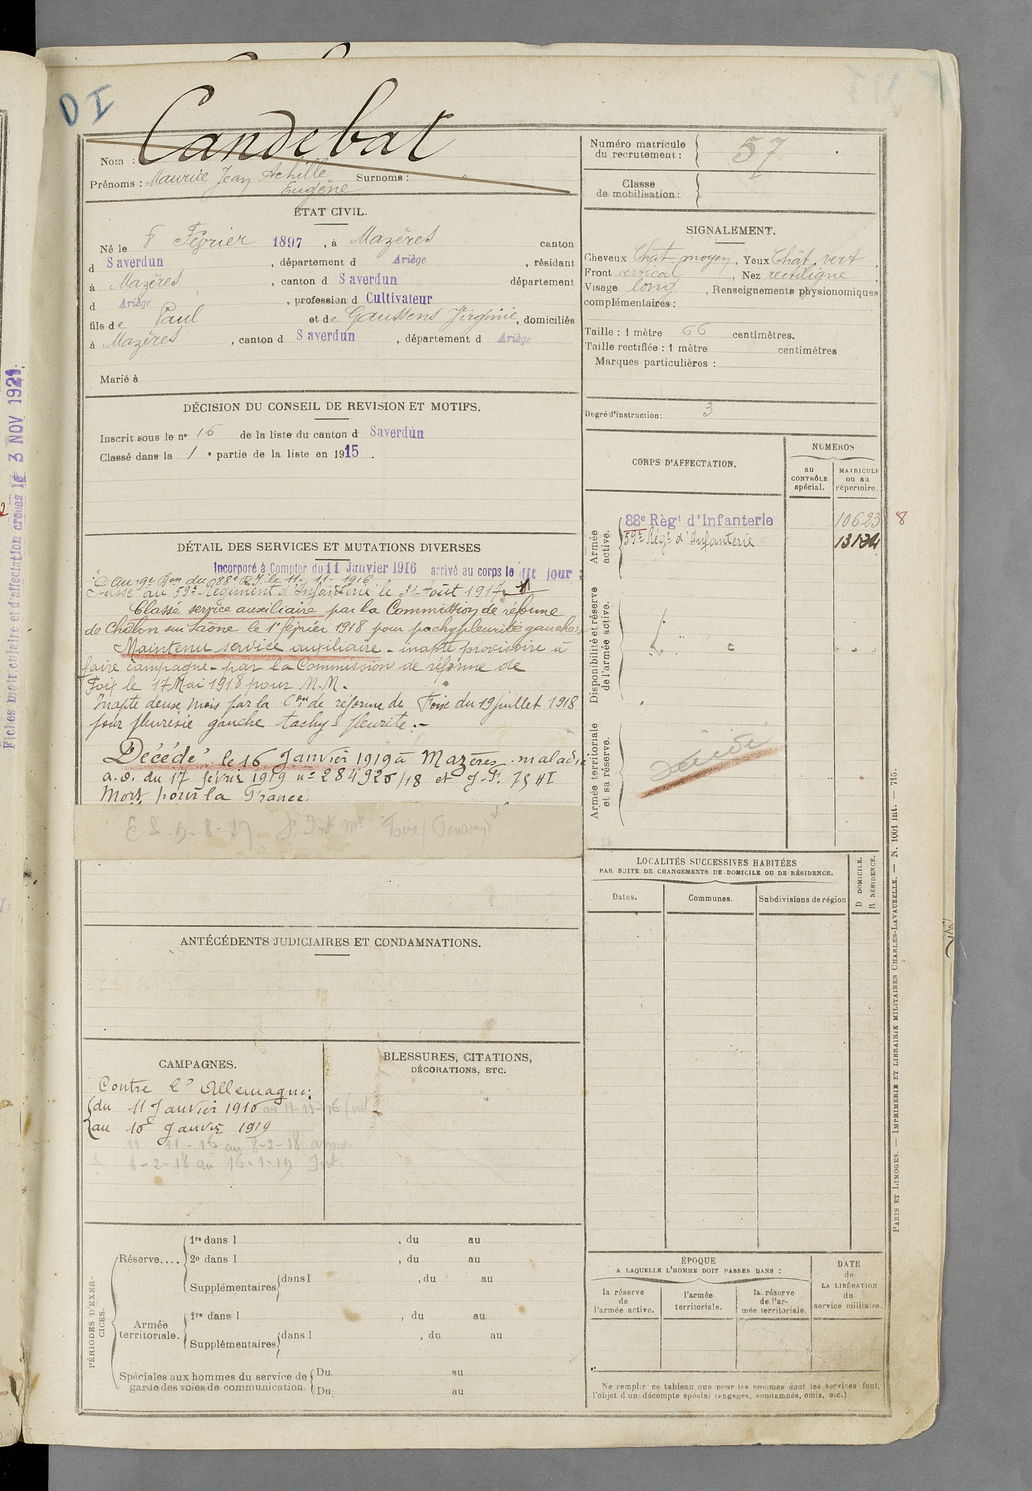 D I
Candebat
Nom :
Prénoms : Maurice Jean Achille Surnoms :
Eugène
ÉTAT CIVIL.
Né le 8 Février 1897, à Mazères canton
d Saverdun, département d Ariège, résidant
à Mazères, canton d Saverdun département
d Ariège, profession d Cultivateur
fils de Paul et de Gaussens Virginie, domiciliés
à Mazères, canton d Saverdun, département d Ariège
Marié à
DÉCISION DU CONSEIL DE REVISION ET MOTIFS.
Inscrit sous le n° 16 de la liste du canton d Saverdun
Classé dans la 1e partie de la liste en 1915.
DÉTAIL DES SERVICES ET MUTATIONS DIVERSES
Incorporé à Compter du 11 Janvier 1916 arrivé au corps le dit jour
Au 9e Bon du 88e R.I. le 11-11-1916
Passé au 59e Régiment d'Infanterie le 31 Août 1917
Classé service auxiliaire par la Commission de réforme
de Châlon sur Saône le 1er février 1918 pour pachypleurite gauche
Maintenu service auxiliaire - inapte provisoire à
faire campagne - par la Commission de réforme de
Foix le 17 Mai 1918 pour M.M.
Inapte deux mois par la Con de réforme de Foix du 19 juillet 1918
pour pleurésie gauche
Décédé le 16 Janvier 1919 à Mazères - maladie
a.o. du 17 février 1919 n°
Mort pour la France.
ANTÉCÉDENTS JUDICIAIRES ET CONDAMNATIONS.
CAMPAGNES.
Contre l'Allemagne:
du 11 Janvier 1916 au 11-11-16 Int
au 16 Janvier 1919
11-11-16 au 8-2-18 armée
8-2-18 au 16-1-19 Int.
BLESSURES, CITATIONS,
DÉCORATIONS, ETC.
PÉRIODES D'EXERCICES.
Réserve....
1re dans l , du au
2e dans l , du au
Supplémentaires dans l , du au
Armée
territoriale.
1re dans l , du au
Supplémentaires dans l , du au
Spéciales aux hommes du service de
garde des voies de communication.
Du au
Du au
Numéro matricule
du recrutement : 57
Classe
de mobilisation :
SIGNALEMENT.
Cheveux Chat. moyen, Yeux Chât. vert,
Front vertical, Nez rectiligne
Visage long, Renseignements physionomiques
complémentaires :
Taille : 1 mètre 66 centimètres.
Taille rectifiée : 1 mètre centimètres
Marques particulières :
Degré d'instruction : 3
CORPS D'AFFECTATION.
NUMÉROS
au
CONTRÔLE
spécial.
MATRICULE
ou au
répertoire.
Armée
active.
88e Régt d'Infanterie 10623 8
59e Régt d'Infanterie
Disponibilité et réserve
de l'armée active.
Armée territoriale
et sa réserve.
LOCALITÉS SUCCESSIVES HABITÉES
PAR SUITE DE CHANGEMENTS DE DOMICILE OU DE RÉSIDENCE.
Dates.
Communes.
Subdivisions de région
D DOMICILE.
R RÉSIDENCE.
ÉPOQUE
A LAQUELLE L'HOMME DOIT PASSER DANS :
la réserve
de
l'armée active.
l'armée
territoriale.
la réserve
de l'ar-
mée territoriale.
DATE
de
LA LIBÉRATION
du
service militaire.
Ne remplir ce tableau que pour les hommes dont les services font
l'objet d'un décompte spécial (engagés, condamnés, omis, etc.).
PARIS ET LIMOGES. — IMPRIMERIE ET LIBRAIRIE MILITAIRES CHARLES-LAVAUZELLE. — N. 1001 int. — 715.
Fiches matriculaire et d'affectation créées le 3 NOV 1921.